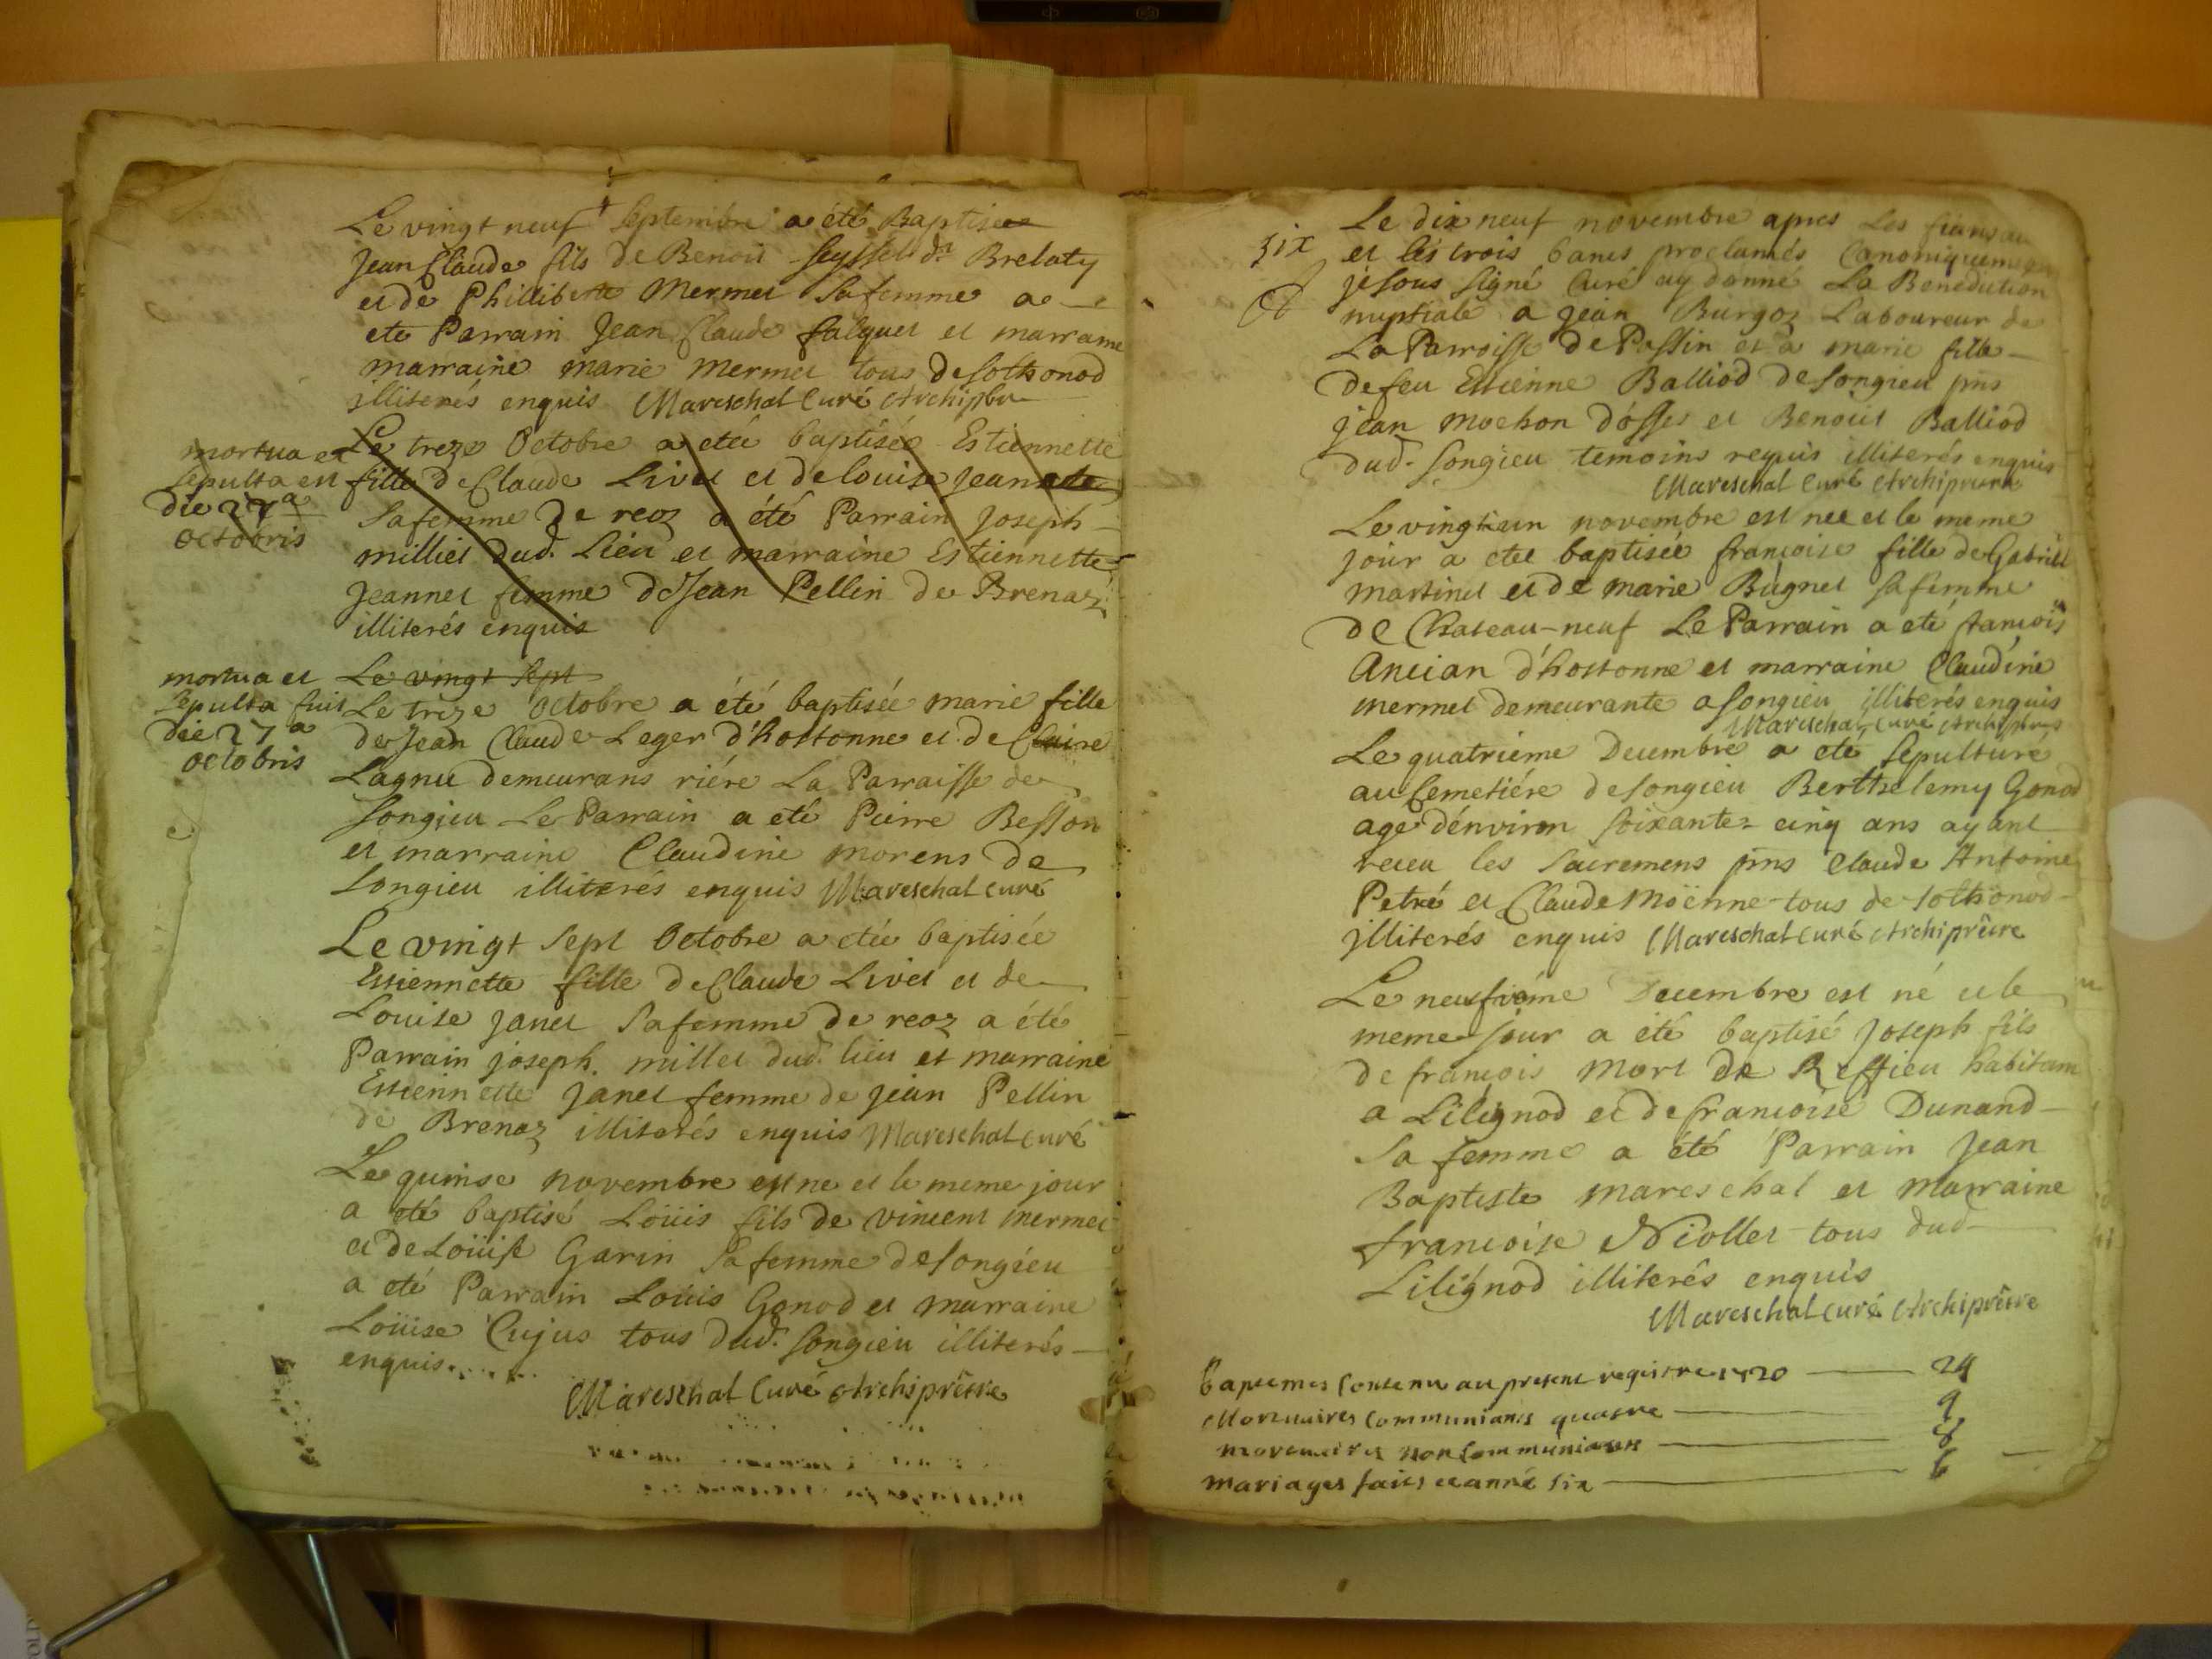 Le vingt neuf septembre a été Baptisé
Jean Claude fils de Benoit Seyssel dt Brelaty
et de Philliberte Mermet sa femme a
ete Parrain Jean Claude falquet et marrame
marraine marie Mermet tous de sothonod
illiterés enquis Mareschal Curé Archipbre
mortua et
sepulta est
die 27a
Octobris
Le treze Octobre a eteé baptisée Estiennette
fille de Claude Livet et de louise Jeannete
sa femme de reoz a été Parrain Joseph
milliet dud. Lieu et marraine Estiennette
Jeannet femme de Jean Pellin de Brenaz
illiterés enquis
mortua et
sepulta fuit
die 27a
octobris
Le vingt sept
Le treze Octobre a été baptisée marie fille
de Jean Claude Leger d'hostonne et de Claire
Lagnu demeurans riére La Parraisse de
Songieu Le Parrain a eté Pierre Besson
et marraine Claudine morens de
Songieu illiterés enquis Mareschal curé
Le vingt sept Octobre a etée baptisée
Estiennette fille de Claude Livet et de
Louise Janet sa femme de reoz a été
Parrain joseph. millet dud. lieu et marraine
Estiennette Janet femme de jean Pellin
de Brenaz illiterés enquis Mareschal curé
Le quinse novembre est ne et le meme jour
a eté baptisé Loüis fils de vincent mermet
et de Loüise Garin sa femme de songieu
a eté Parrain Loüis Gonod et marraine
Loüise Cujus tous dud. songieu illiterés
enquis.....
Mareschal Curé Archiprêtre
six
Le dix neuf novembre apres Les fiansai
et les trois bancs proclamés Canoniquement
je sous signé Curé ay donné La Benediction
nuptiale a jean Burgoz Laboureur de
La Parroisse de Passin et a marie fille
de feu Estienne Balliod de songieu pns
jean mochon d'osses et Benoit Balliod
dud. songieu temoins requis illiterés enquis
Mareschal Curé Archiprêtre
Le vingt un novembre est nee et le meme
jour a etee baptisée francoise fille de Gabriel
martinet et de marie Bugnet sa femme
de Chateau-neuf Le Parrain a eté francois
Ancian d'hostonne et marraine Claudine
mermet demeurante a songieu illiterés enquis
Mareschal Curé Archiprêtre
Le quatriéme Decembre a eté sepulturé
au Cemetiére de songieu Berthelemy Gonod
agé d'environ soixante-cinq ans ayant
receu les sacremens pns Claude Antoine
Petré et Claude Moënne tous de sothonod
illiterés enquis Mareschal curé Archiprêtre
Le neufviéme Decembre est né et le
meme jour a été baptisé Joseph fils
de francois Mort de Ruffieu habitant
a Lilignod et de francoise Dunand
sa femme a été Parrain Jean
Baptiste mareschal et marraine
francoise Nicollet tous dud
Lilignod illiterés enquis
Mareschal curé Archiprêtre
Baptemes Contenu au present registre 1720 — 24
Mortuaires Communians quatre — 4
mortuaires non Communians — 8
mariages faits ce anné six — 6